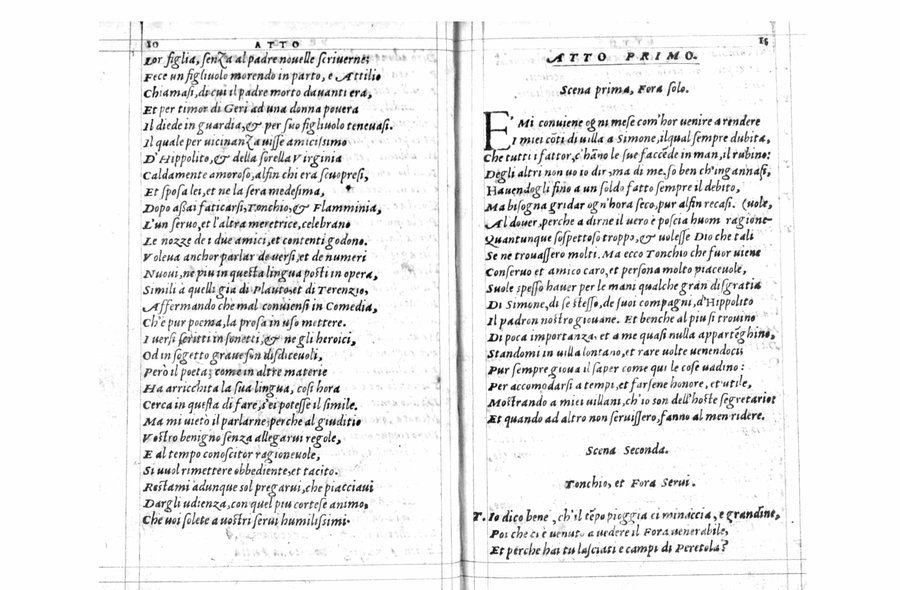 10 ATTO
Lor figlia, senza al padre novelle scriverne;
Fece un figliuolo morendo in parto, e Attilio
Chiamasi, di cui il padre morto davanti era,
Et per timor di Geri ad una donna povera
Il diede in guardia, & per suo figliuolo tenevasi.
Il quale per vicinanza visse amicissimo
D'Hippolito, & della sorella Virginia
Caldamente amoroso, alfin chi era scuopresi,
Et sposa lei, et ne la sera medesima,
Dopo assai faticarsi, Tonchio, & Flamminia,
L'un servo, et l'altra meretrice, celebrano
Le nozze de i due amici, et contenti godono.
Voleva anchor parlar de versi, et de numeri
Nuovi, ne piu in questa lingua posti in opera,
Simili à quelli gia di Plauto, et di Terenzio,
Affermando che mal conviensi in Comedia,
Ch'è pur poema, la prosa in uso mettere.
I versi scritti in sonetti, & ne gli heroici,
Od in sogetto grave son disdicevoli,
Però il poeta; come in altre materie
Ha arricchita la sua lingua, così hora
Cerca in questa di fare, s'ei potesse il simile.
Ma mi vietò il parlarne, perche al giuditio
Vostro benigno senza allegarvi regole,
E al tempo conoscitor ragionevole,
Si vuol rimettere obbediente, et tacito.
Restami adunque sol pregarvi, che piacciavi
Dargli udienza, con quel piu cortese animo,
Che voi solete a vostri servi humilissimi.
15
ATTO PRIMO.
Scena prima, Fora solo.
E' Mi conviene ogni mese com'hor venire a rendere
I miei cõti di villa a Simone, il qual sempre dubita,
Che tutti i fattor, c'hãno le sue faccẽde in man, il rubino:
Degli altri non vo io dir, ma di me, so ben ch'ingannasi,
Havendogli fino a un soldo fatto sempre il debito,
Ma bisogna gridar ogn'hora seco, pur alfin recasi. (vole,
Al dover, perche a dirne il vero è poscia huom ragione
Quantunque sospettoso troppo, & volesse Dio che tali
Se ne trovassero molti. Ma ecco Tonchio che fuor viene
Conservo et amico caro, et persona molto piacevole,
Suole spesso haver per le mani qualche gran disgratia
Di Simone, di se stesso, de suoi compagni, d'Hippolito
Il padron nostro giovane. Et benche al piu si trovino
Di poca importanza, et a me quasi nulla appartẽghino,
Standomi in villa lontano, et rare volte venendoci
Pur sempre giova il saper come qui le cose vadino:
Per accomodarsi a tempi, et farsene honore, et utile,
Mostrando a miei villani, ch'io son dell'hoste segretario:
Et quando ad altro non servissero, fanno al men ridere.
Scena Seconda.
Tonchio, et Fora Servi.
T. Io dico bene, ch'il tẽpo pioggia ci minaccia, e grandine,
Poi che ci è venuto a vedere il Fora venerabile,
Et perche hai tu lasciati e campi di Peretola?